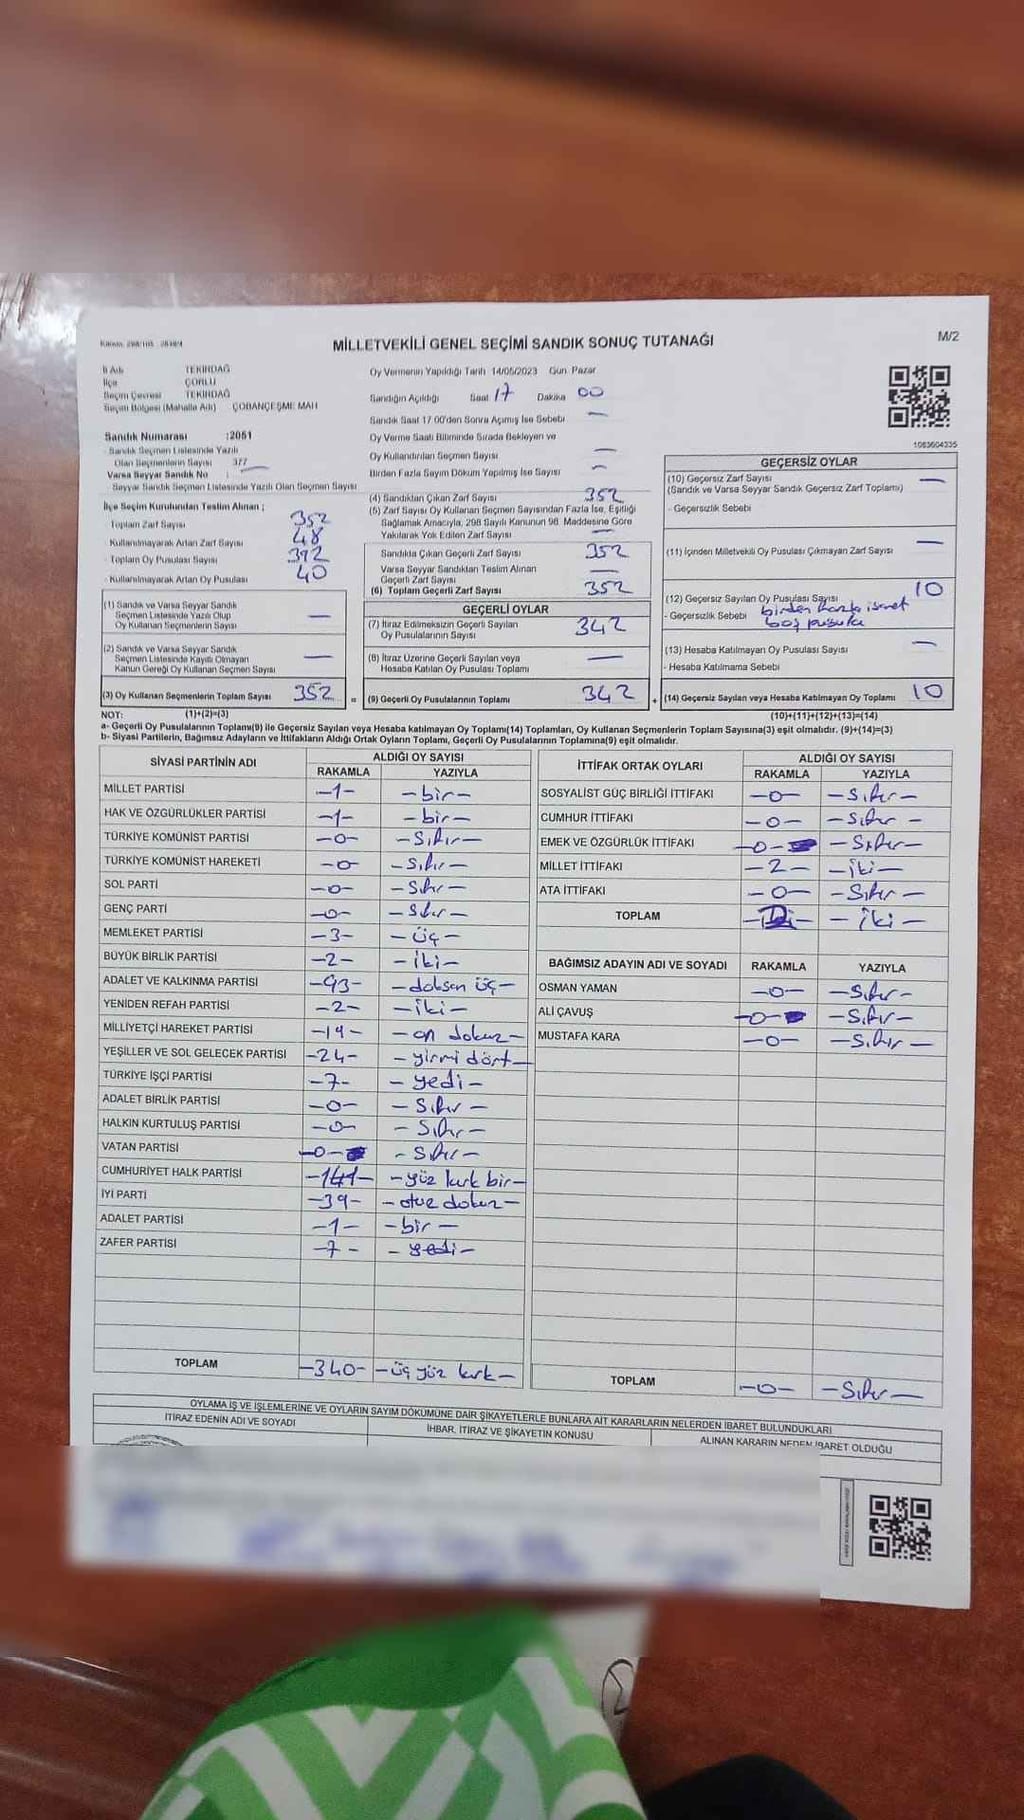 MİLLETVEKİLİ GENEL SEÇİMİ SANDIK SONUÇ TUTANAĞI
M/2
İl Adı TEKİRDAĞ
İlçe ÇORLU
Seçim Çevresi TEKİRDAĞ
Seçim Bölgesi (Mahalle Adı) ÇOBANÇEŞME MAH
Sandık Numarası :2051
Sandık Seçmen Listesinde Yazılı
Olan Seçmenlerin Sayısı 377
Varsa Seyyar Sandık No :
Seyyar Sandık Seçmen Listesinde Yazılı Olan Seçmen Sayısı
İlçe Seçim Kurulundan Teslim Alınan ;
- Toplam Zarf Sayısı
352
- Kullanılmayarak Artan Zarf Sayısı 48
- Toplam Oy Pusulası Sayısı 392
- Kullanılmayarak Artan Oy Pusulası 40
(1) Sandık ve Varsa Seyyar Sandık
Seçmen Listesinde Yazılı Olup
Oy Kullanan Seçmenlerin Sayısı —
(2) Sandık ve Varsa Seyyar Sandık
Seçmen Listesinde Kayıtlı Olmayan
Kanun Gereği Oy Kullanan Seçmen Sayısı —
(3) Oy Kullanan Seçmenlerin Toplam Sayısı 352 =
Oy Vermenin Yapıldığı Tarih 14/05/2023 Gün Pazar
Sandığın Açıldığı Saat 17 Dakika 00
Sandık Saat 17.00'den Sonra Açımış İse Sebebi —
Oy Verme Saati Bitiminde Sırada Bekleyen ve
Oy Kullandırılan Seçmen Sayısı —
Birden Fazla Sayım Döküm Yapılmış İse Sayısı —
(4) Sandıktan Çıkan Zarf Sayısı 352
(5) Zarf Sayısı Oy Kullanan Seçmen Sayısından Fazla İse, Eşitliği
Sağlamak Amacıyla, 298 Sayılı Kanunun 98. Maddesine Göre
Yakılarak Yok Edilen Zarf Sayısı —
Sandıkta Çıkan Geçerli Zarf Sayısı 352
Varsa Seyyar Sandıktan Teslim Alınan
Geçerli Zarf Sayısı —
(6) Toplam Geçerli Zarf Sayısı 352
GEÇERLİ OYLAR
(7) İtiraz Edilmeksizin Geçerli Sayılan
Oy Pusulalarının Sayısı 342
(8) İtiraz Üzerine Geçerli Sayılan veya
Hesaba Katılan Oy Pusulası Toplamı —
(9) Geçerli Oy Pusulalarının Toplamı 342 +
1083604335
GEÇERSİZ OYLAR
(10) Geçersiz Zarf Sayısı —
(Sandık ve Varsa Seyyar Sandık Geçersiz Zarf Toplamı)
- Geçersizlik Sebebi
(11) İçinden Milletvekili Oy Pusulası Çıkmayan Zarf Sayısı —
(12) Geçersiz Sayılan Oy Pusulası Sayısı 10
- Geçersizlik Sebebi birden fazla işaret
boş pusula
(13) Hesaba Katılmayan Oy Pusulası Sayısı —
- Hesaba Katılmama Sebebi
(14) Geçersiz Sayılan veya Hesaba Katılmayan Oy Toplamı 10
NOT: (1)+(2)=(3) (10)+(11)+(12)+(13)=(14)
a- Geçerli Oy Pusulalarının Toplamı(9) ile Geçersiz Sayılan veya Hesaba katılmayan Oy Toplamı(14) Toplamları, Oy Kullanan Seçmenlerin Toplam Sayısına(3) eşit olmalıdır. (9)+(14)=(3)
b- Siyasi Partilerin, Bağımsız Adayların ve İttifakların Aldığı Ortak Oyların Toplamı, Geçerli Oy Pusulalarının Toplamına(9) eşit olmalıdır.
SİYASİ PARTİNİN ADI ALDIĞI OY SAYISI
RAKAMLA YAZIYLA
MİLLET PARTİSİ -1- -bir-
HAK VE ÖZGÜRLÜKLER PARTİSİ -1- -bir-
TÜRKİYE KOMÜNİST PARTİSİ -0- -sıfır-
TÜRKİYE KOMÜNİST HAREKETİ -0 -sıfır-
SOL PARTİ -0- -sıfır-
GENÇ PARTİ -0- -sıfır-
MEMLEKET PARTİSİ -3- -üç-
BÜYÜK BİRLİK PARTİSİ -2- -iki-
ADALET VE KALKINMA PARTİSİ -93- -doksan üç-
YENİDEN REFAH PARTİSİ -2- -iki-
MİLLİYETÇİ HAREKET PARTİSİ -19- -on dokuz-
YEŞİLLER VE SOL GELECEK PARTİSİ -24- -yirmi dört-
TÜRKİYE İŞÇİ PARTİSİ -7- -yedi-
ADALET BİRLİK PARTİSİ -0- -sıfır-
HALKIN KURTULUŞ PARTİSİ -0- -sıfır-
VATAN PARTİSİ -0- -sıfır-
CUMHURİYET HALK PARTİSİ -141- -yüz kırk bir-
İYİ PARTİ -39- -otuz dokuz-
ADALET PARTİSİ -1- -bir-
ZAFER PARTİSİ -7- -yedi-
TOPLAM -340- -üç yüz kırk-
İTTİFAK ORTAK OYLARI ALDIĞI OY SAYISI
RAKAMLA YAZIYLA
SOSYALİST GÜÇ BİRLİĞİ İTTİFAKI -0- -sıfır-
CUMHUR İTTİFAKI -0- -sıfır-
EMEK VE ÖZGÜRLÜK İTTİFAKI -0- -sıfır-
MİLLET İTTİFAKI -2- -iki-
ATA İTTİFAKI -0- -sıfır-
TOPLAM -iki-
BAĞIMSIZ ADAYIN ADI VE SOYADI RAKAMLA YAZIYLA
OSMAN YAMAN -0- -sıfır-
ALİ ÇAVUŞ -0- -sıfır-
MUSTAFA KARA -0- -sıfır-
TOPLAM -0- -sıfır-
OYLAMA İŞ VE İŞLEMLERİNE VE OYLARIN SAYIM DÖKÜMÜNE DAİR ŞİKAYETLERLE BUNLARA AİT KARARLARIN NELERDEN İBARET BULUNDUKLARI
İTİRAZ EDENİN ADI VE SOYADI İHBAR, İTİRAZ VE ŞİKAYETİN KONUSU ALINAN KARARIN NEDEN İBARET OLDUĞU